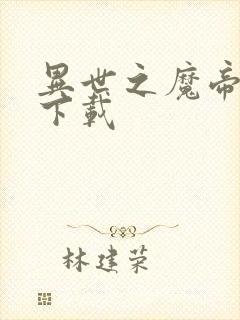 異世之魔帝
下載
林建荣